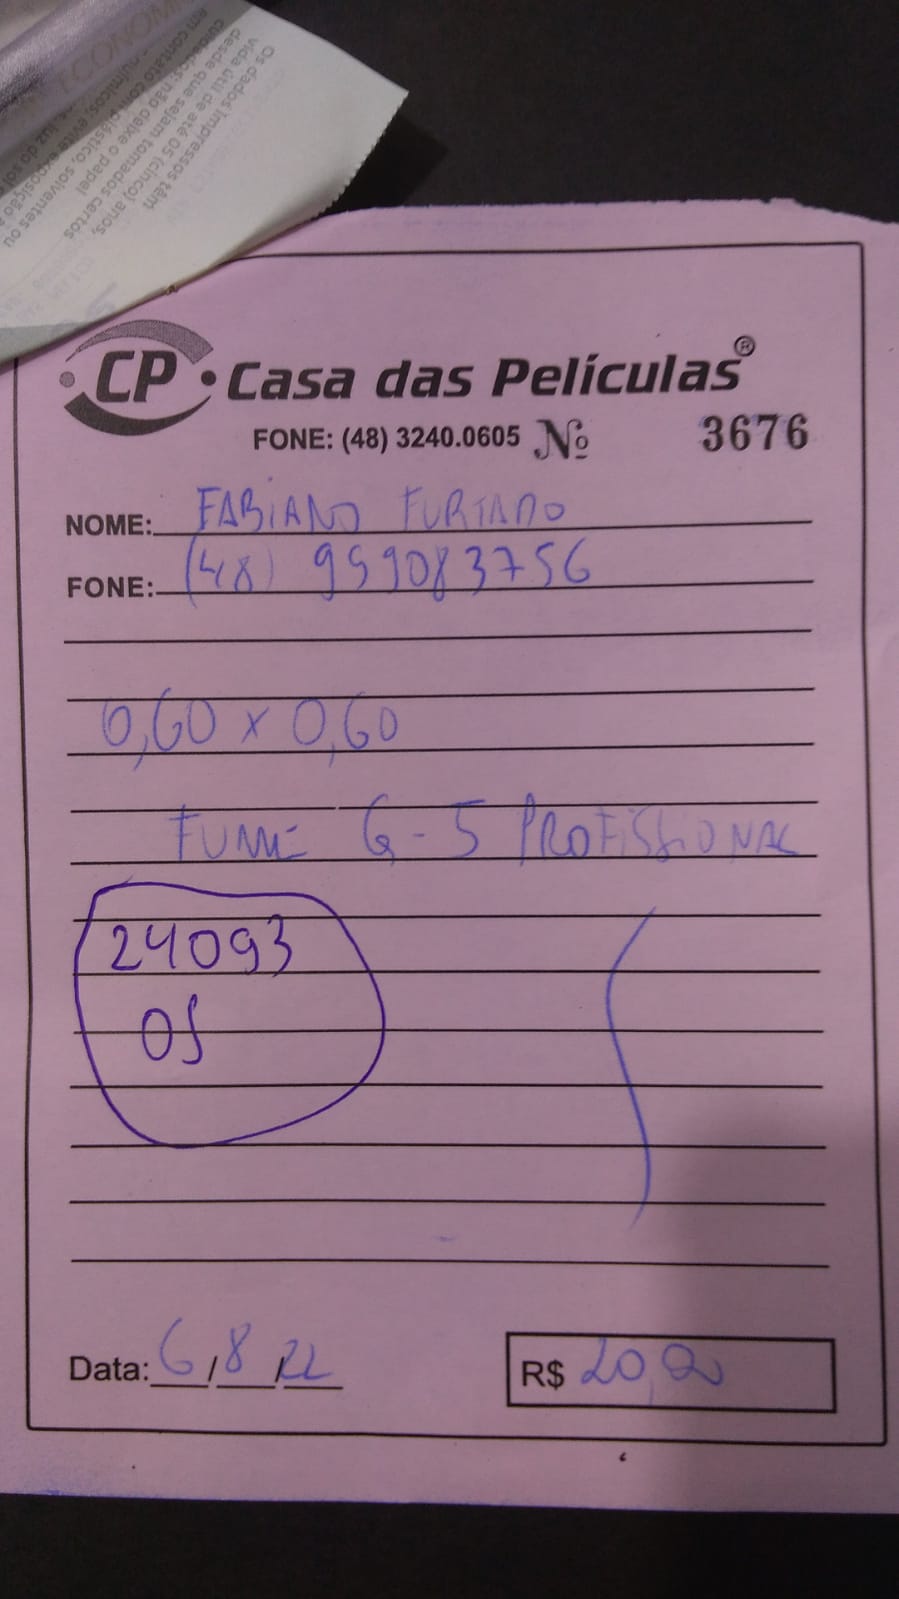 ECONOM
Os dados impressos têm
vida útil de até 05 (cinco) anos,
desde que sejam tomados certos
cuidados: não deixe o papel
em contato com plástico, solventes ou
CP
Casa das Películas®
FONE: (48) 3240.0605 Nº 3676
NOME: FABIANO FURTADO
FONE: (48) 999083756
0,60 x 0,60
FUMÊ G-5 PROFISSIONAL
24093
OS
Data: 6/8/22
R$ 20,00